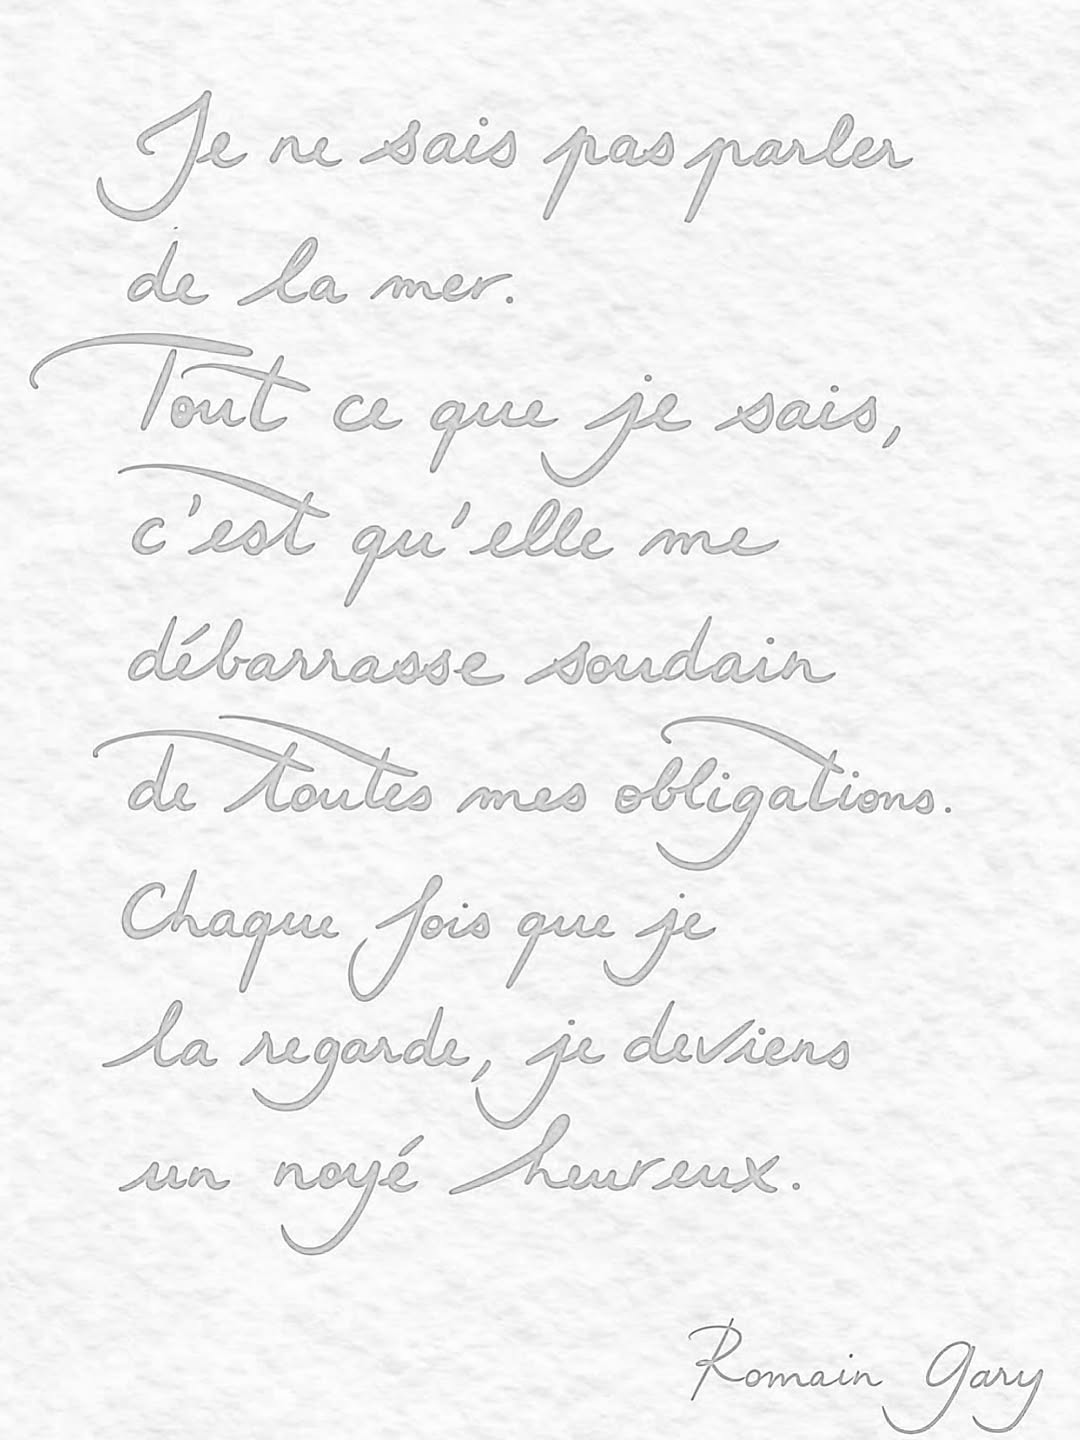 Je ne sais pas parler
de la mer.
Tout ce que je sais,
c'est qu'elle me
débarrasse soudain
de toutes mes obligations.
Chaque fois que je
la regarde, je deviens
un noyé heureux.
Romain Gary